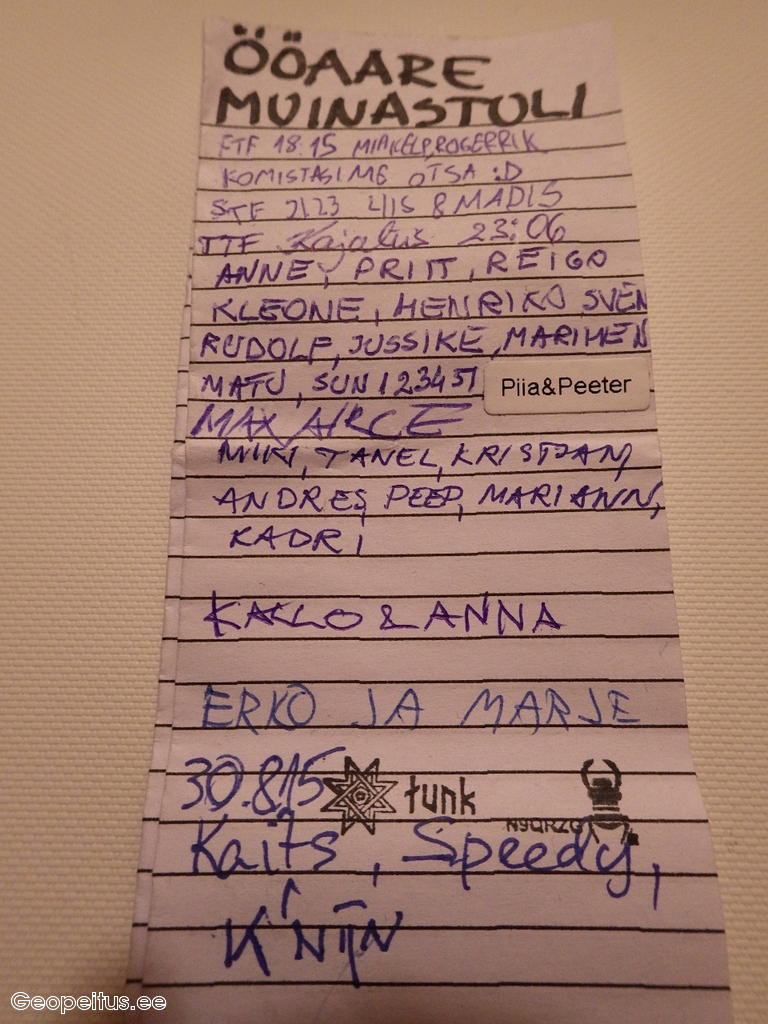 ÖÖAARE
MUINASTULI
FTF 18:15
KOMISTASIME OTSA :D
STF 21:23 & MADIS
TTF Kajalus 23:06
ANNE, PRIIT, REIGO
KLEONE, HENRIKO SVEN
RUDOLF, JUSSIKE, MARIHEN
MATU, SUN12345!
Piia&Peeter
MAX AIRCE
MIKI, TANEL, KRISTJAN,
ANDRES, PEEP, MARIANN,
KADRI
KALLO & ANNA
ERKO JA MARJE
30.8.15 tunk
Kaits, Speedy,
Geopeitus.ee